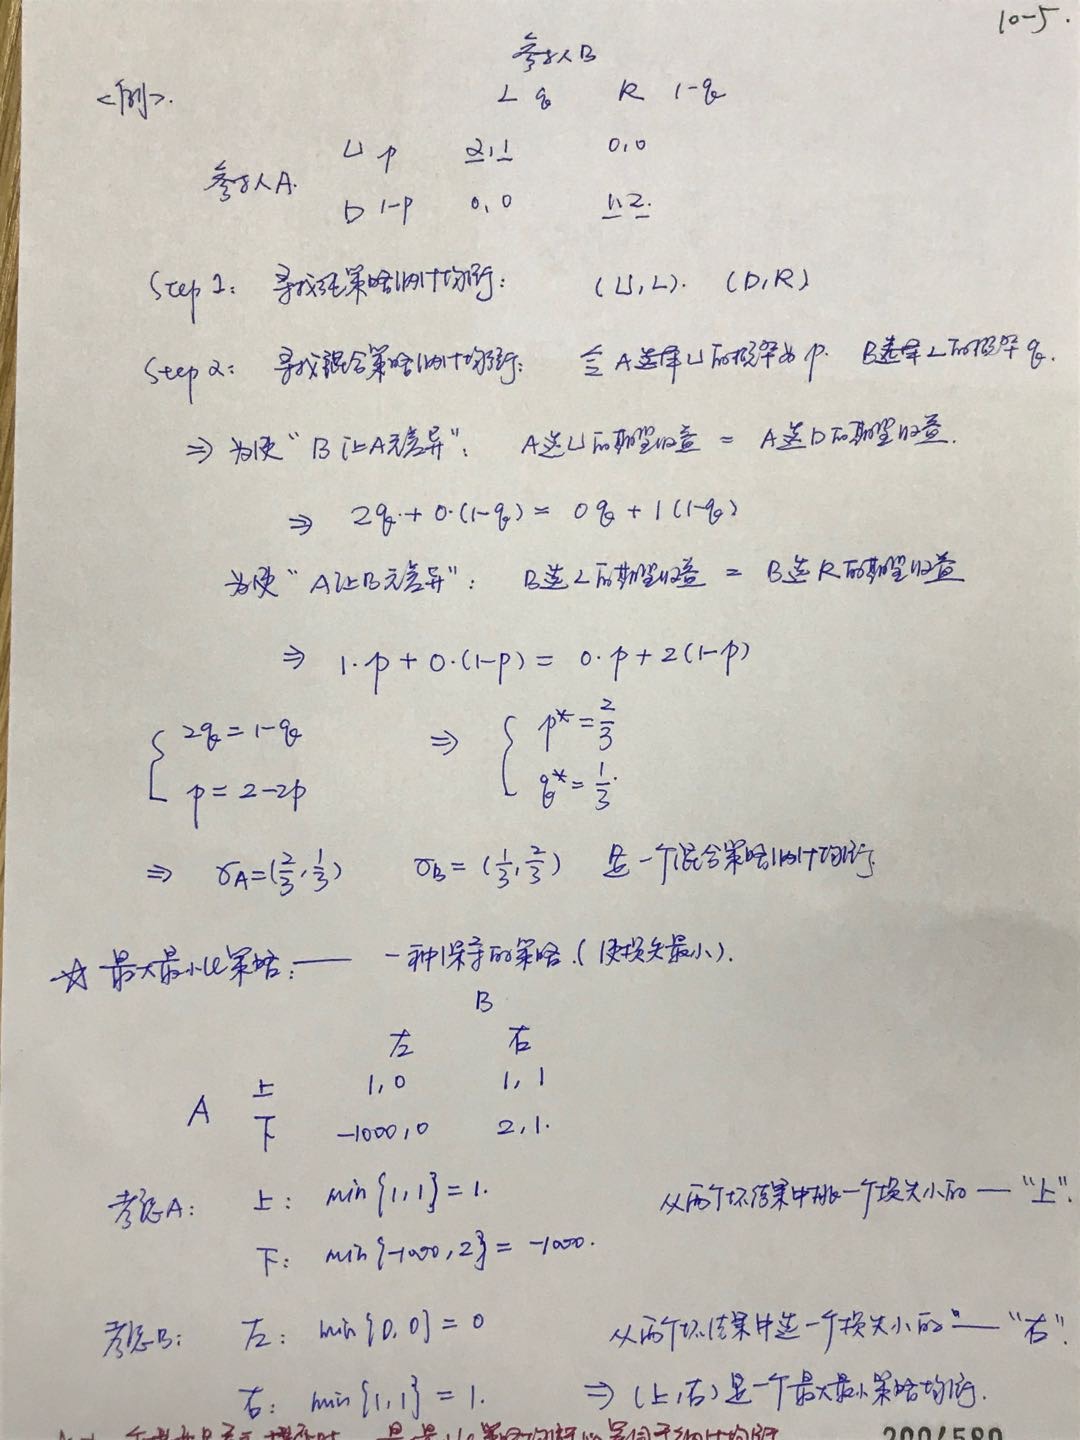 10-5.
参与人B
<例>.
L q R 1-q
U p 2,1 0,0
参与人A.
D 1-p 0,0 1,2.
Step 1: 寻找纯策略纳什均衡: (U,L). (D,R)
Step 2: 寻找混合策略纳什均衡: 令A选择U的概率为p. B选择L的概率q.
⇒ 为使“B让A无差异”: A选U的期望收益 = A选D的期望收益.
⇒ 2q+0·(1-q) = 0q+1(1-q)
为使“A让B无差异”: B选L的期望收益 = B选R的期望收益
⇒ 1·p+0·(1-p) = 0·p+2(1-p)
{ 2q=1-q ⇒ { p*=2/3
p=2-2p q*=1/3.
⇒ σA=(2/3,1/3) σB=(1/3,2/3) 是一个混合策略纳什均衡
☆ 最大最小化策略: —— 一种保守的策略.(使损失最小).
B
左 右
上 1,0 1,1
A
下 -1000,0 2,1.
考虑A: 上: min{1,1}=1. 从两个坏结果中挑一个损失小的 — “上”.
下: min{-1000,2}=-1000.
考虑B: 左: min{0,0}=0 从两个坏结果中选一个损失小的 — “右”.
右: min{1,1}=1. ⇒ (上,右)是一个最大最小策略均衡.
200/580